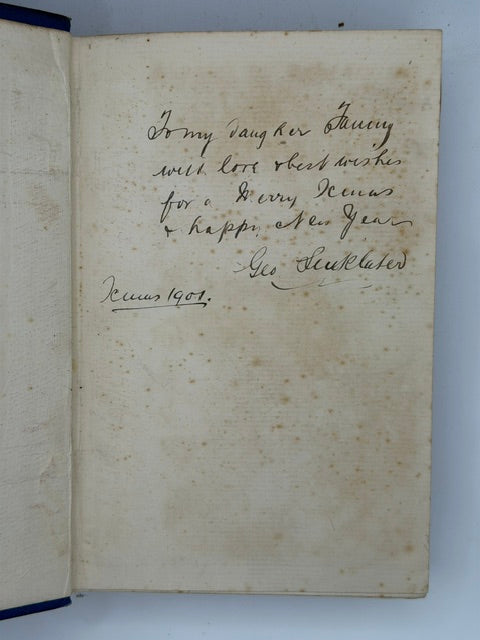 To my daugher Fanny
with love & best wishes
for a Merry Xmas
& happy New Year
Geo
Xmas 1901.